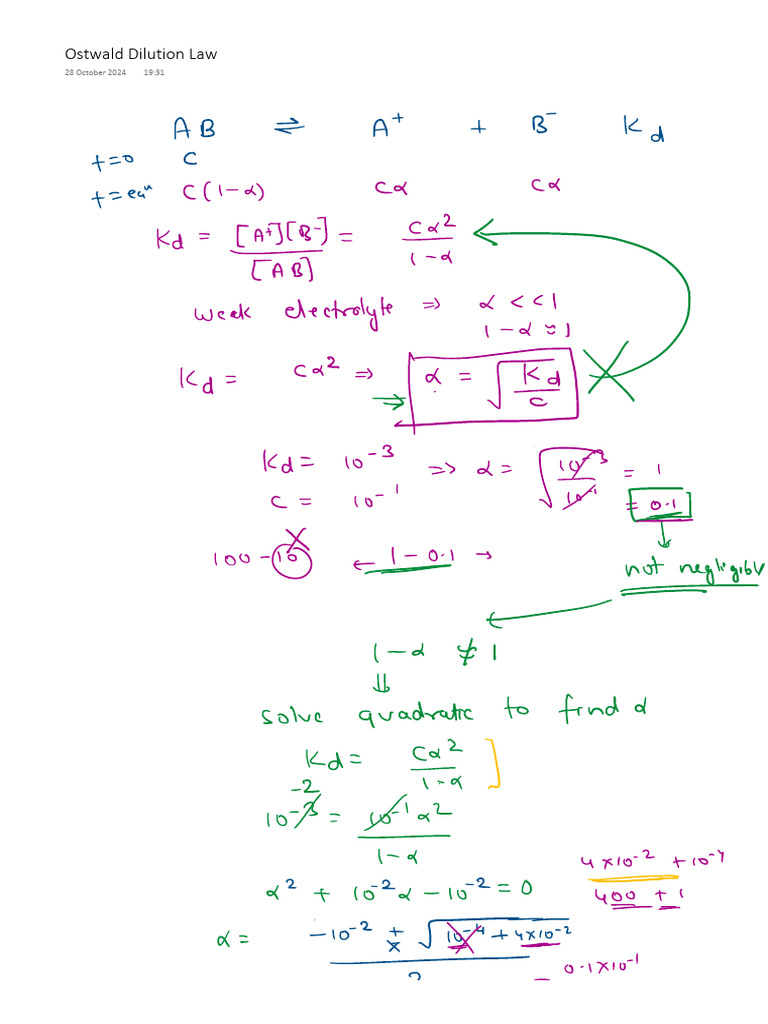 Ostwald Dilution Law
28 October 2024 19:31
AB ⇌ A⁺ + B⁻ Kd
t=0 C
t=eqⁿ C(1-α) Cα Cα
Kd = [A⁺][B⁻] / [AB] = Cα² / 1-α
weak electrolyte ⇒ α <<1
1-α ≈ 1
Kd = Cα² ⇒ α = √(Kd / C)
Kd = 10⁻³ ⇒ α = √(10⁻³ / 10⁻¹) = 1
C = 10⁻¹ = 0.1
100-10 ← 1-0.1 →
not negligible
1-α ≠ 1
⇓
solve quadratic to find α
Kd = Cα² / 1-α
-2
10⁻³ = 10⁻¹α² / 1-α
4×10⁻² + 10⁻⁴
α² + 10⁻²α - 10⁻² = 0
400 + 1
α = -10⁻² + √(10⁻⁴ + 4×10⁻²) / 2
= 0.1×10⁻¹